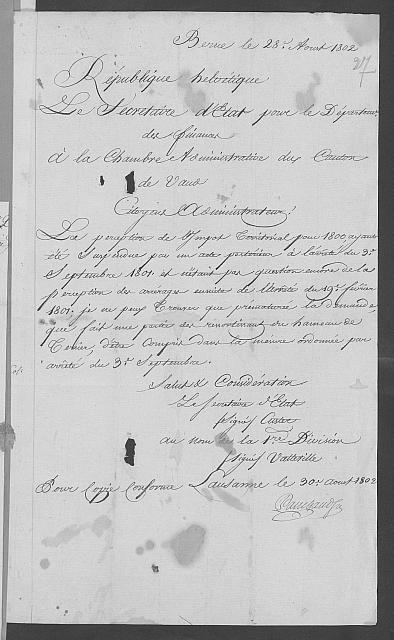 Berne le 28r. Aoust 1802
27
République helvetique
Le Secretaire d'Etat pour le Départemt.
des finances
à la Chambre Administrative du Canton
de Vaud
Citoyens Administrateurs!
La perception de l'Impot Territorial pour 1800, ayant
été Suspendue par un acte postérieur à l'arrêté du 3r.
Septembre 1801. et n'étant pas question encore de la
perception des arrérages ensuite de l'arrêté du 19r. fevrier
1801. je ne peux Trouver que prématurée la demande,
que fait une partie des ressortissans du hameau de
d'être Compris dans la mesure ordonnée par
arrêté du 3r. Septembre.
Salut & Considération
Le Secretaire d'Etat
signé Custer
au nom de la 1re Division
signé
Pour Copie Conforme Lausanne le 30r. aoust 1802